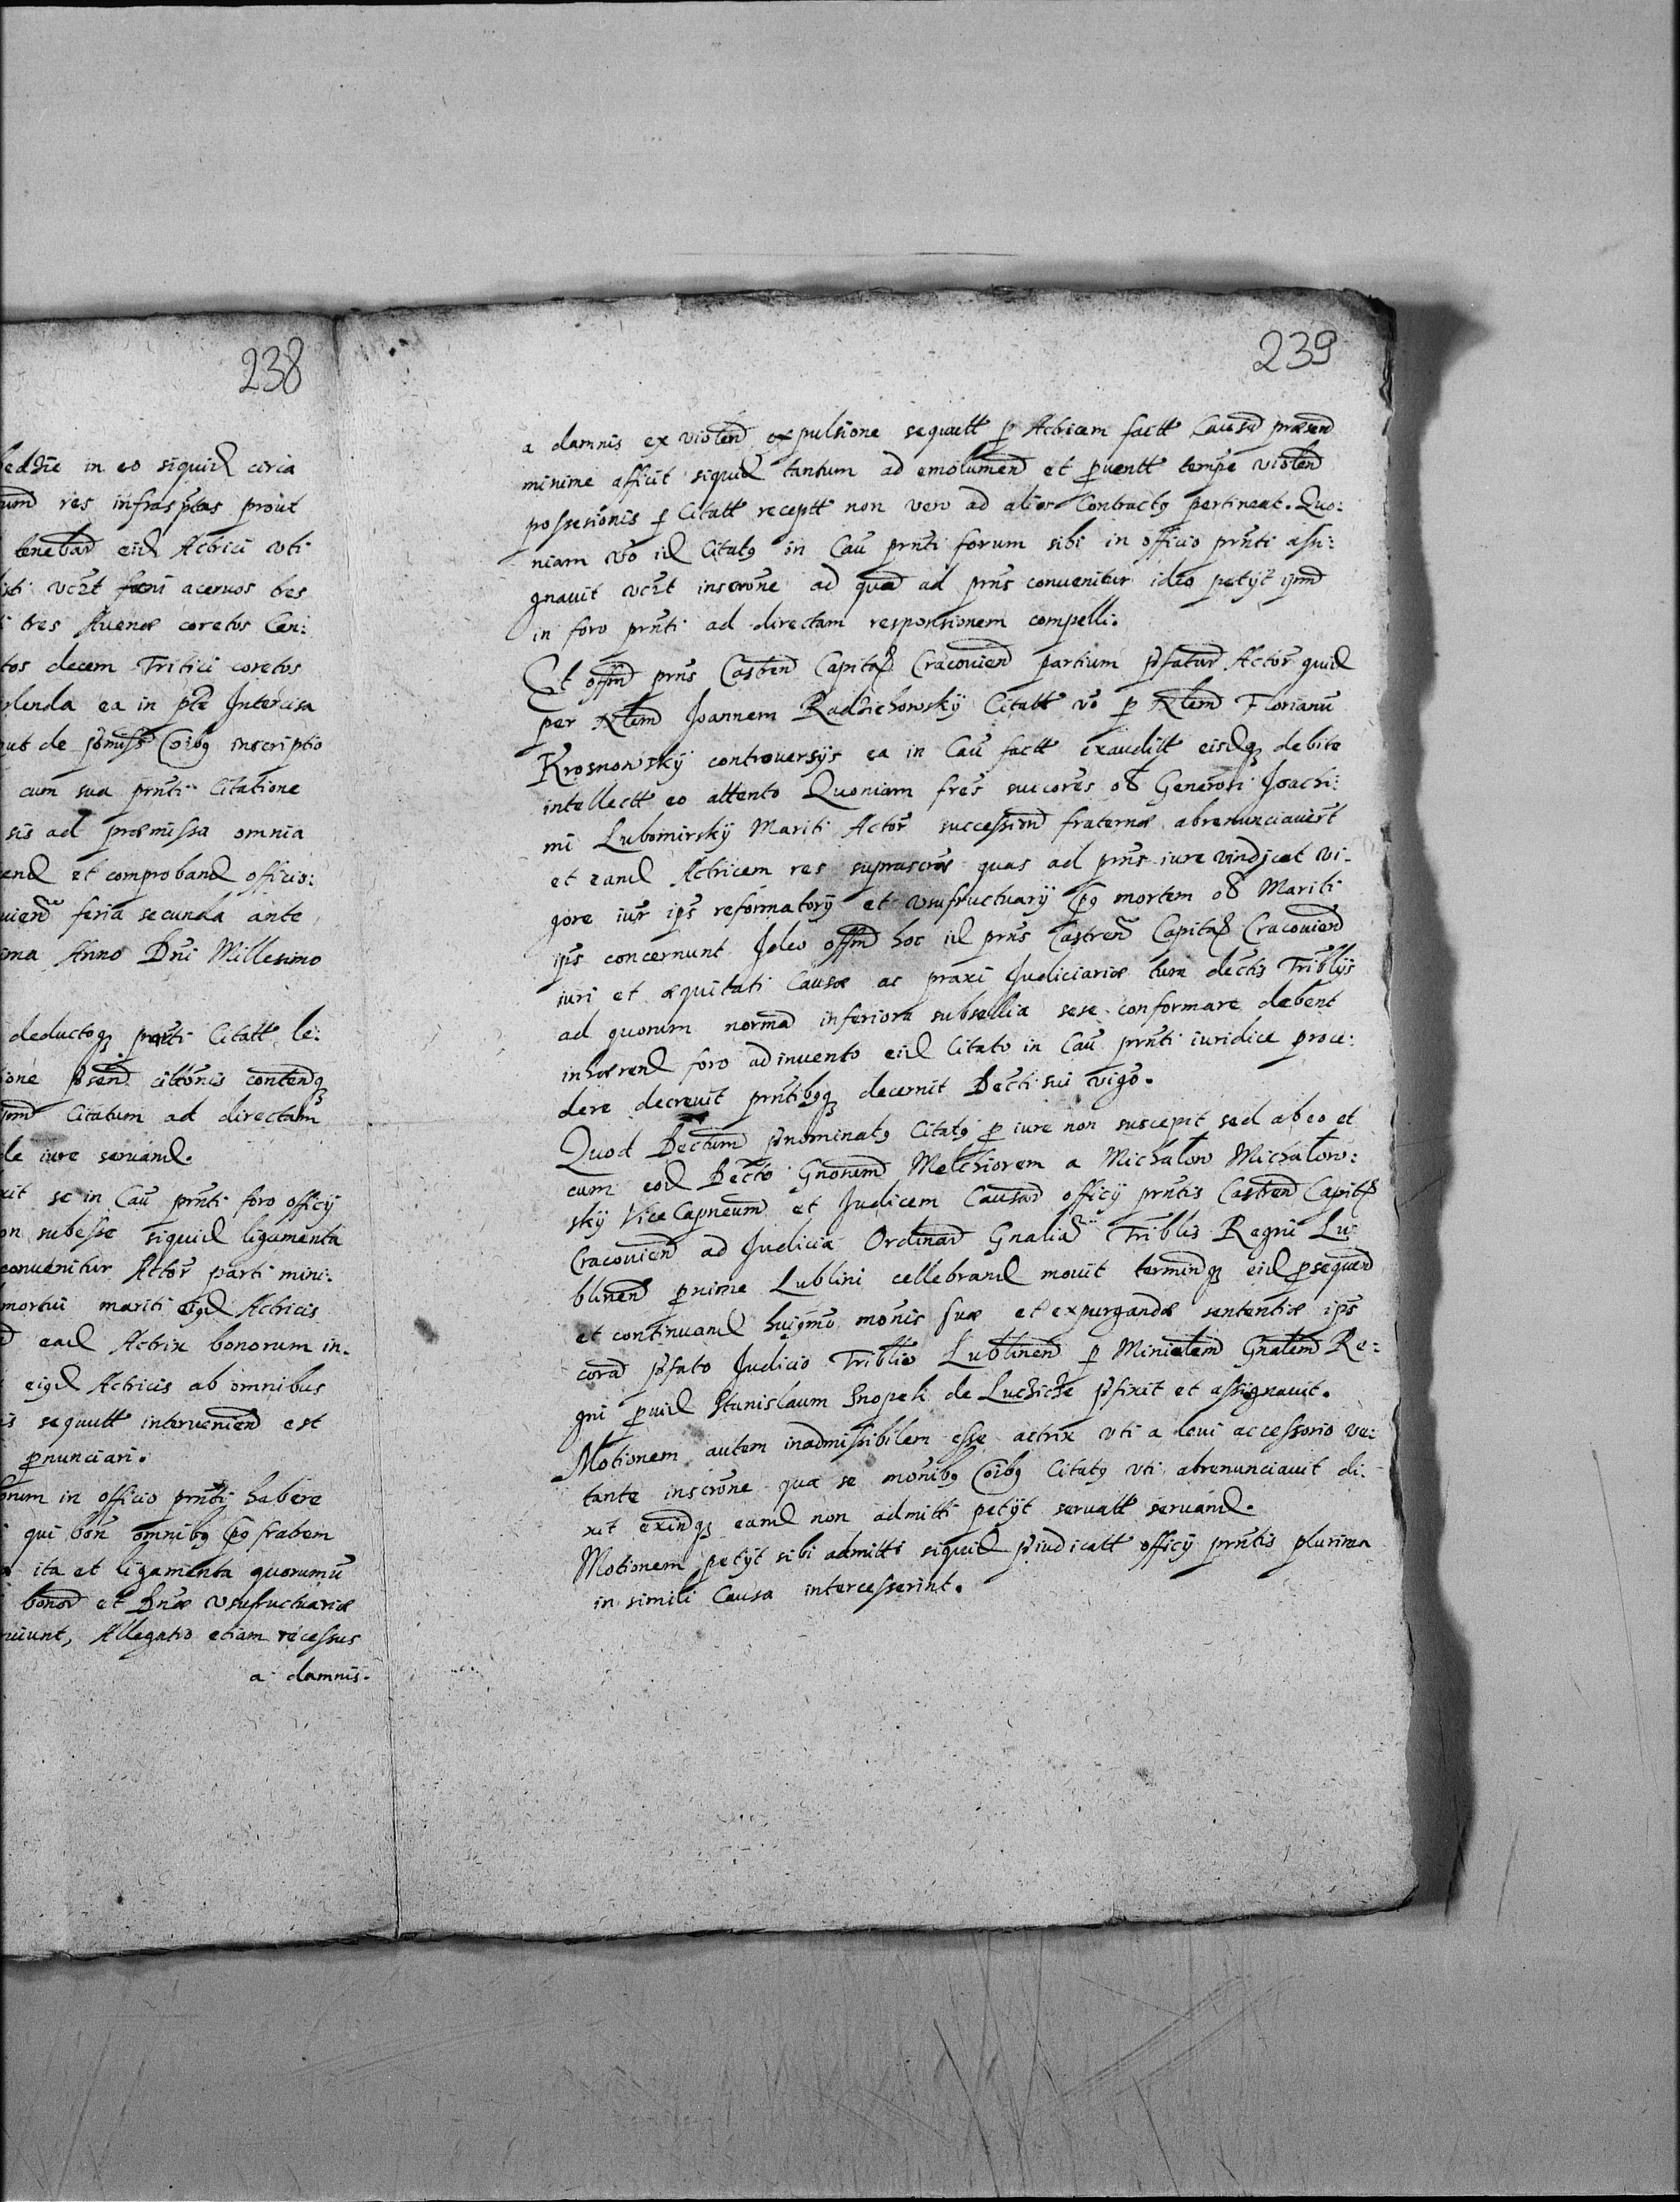 238
in eo siquid circa
res infrasptas prout
tenebat eid Actrici vti
vczt fani aceruos tres
tres Auenæ coretos Cen:
tos decem Tritici coretos
ea in pte Intercisa
de pmiss Coibg inscriptio
cum sua prnti Citatione
sis ad præmissa omnia
et comproband officio:
feria secunda ante
Anno Dni Millesimo
deductoqz parti Citatt le:
citonis contendqz
Citatum ad directam
iure seruand.
se in Cau prnti foro officij
subesse siquid ligamenta
conuenitur Actor parti mini:
mortui mariti eigd Actricis
ead Actrix bonorum in-
eigd Actricis ab omnibus
sequutt interueniend est
pnunciari.
in officio prnti habere
qui bon omnibg pg fratem
ita et ligamenta quorumu
bonor et Dnæ vsufructuariæ
Allegatio etiam recessus
a damnis.
239
a damnis ex violend expulsione sequutt p Actricem factt Causad præsend
minime afficit siquid tantum ad emolumend et puentt tempe violend
possesionis p Citatt receptt non vero ad alios Contractg pertineat. Quo:
niam vo id Citatg in Cau prnti forum sibi in officio prnti assi:
gnauit vczt inscrone ad quad ad prns conuenitur ideo petijt ipmd
in foro prnti ad directam responsionem compelli.
Et offmd prns Castend Capital Cracouiend partium pfatard Actor quid
per Nlemd Joannem Radzichowskij Citatt vo p Nlemd Florianu
Krosnowskij controuersijs ea in Cau factt exauditt eisdqz debite
intellectt eo attento Quoniam fres succores o8 Generosi Joachi:
mi Lubomirskij Mariti Actor successiond fraternæ abrenunciauert
et eand Actricem res suprascras quas ad prns iure vindicat vi-
gore iur ips reformatorij et vsufructuarij pg mortem o8 Mariti
ips concernunt Ideo offmd hoc id prns Castrend Capital Cracouiend
iuri et æquitati Causæ ac praxi Judiciariæ tum dectis Triblijs
ad quorum normad inferiora subsellia sese conformare debent
inhærend foro adinuento eid Citato in Cau prnti iuridice proce:
dere decreuit prntibgqz decernit Decti sui vigo.
Quod Dectum pnominatg Citatg p iure non suscepit sed ab eo et
cum eod Decto Gnorumd Melchiorem a Michałow Michałow:
skij Vice Capneumd et Judicem Causard officij prntis Castrend Capital
Cracouiend ad Judicia Ordinard Gnalia Triblis Regni Lu:
blinend pxime Lublini cellebrand mouit termindqz eid psequend
et continuand huigmo monis suæ et expurgandæ sententiæ ips
corad pfato Judicio Triblio Lublinend p Minialemd Gnalemd Re:
gni puid Stanislaum Snopek de Luczicze pfixit et assignauit.
Motionem autem inadmissibilem esse actrix vti a leui accessorio ve:
tante inscrone qua se monibg Coibg Citatg vti abrenunciauit di-
xit exindqz eand non admitti petijt seruatt seruand.
Motionem petijt sibi admitti siquid piudicatt officij prntis plurima
in simili Causa intercesserint.